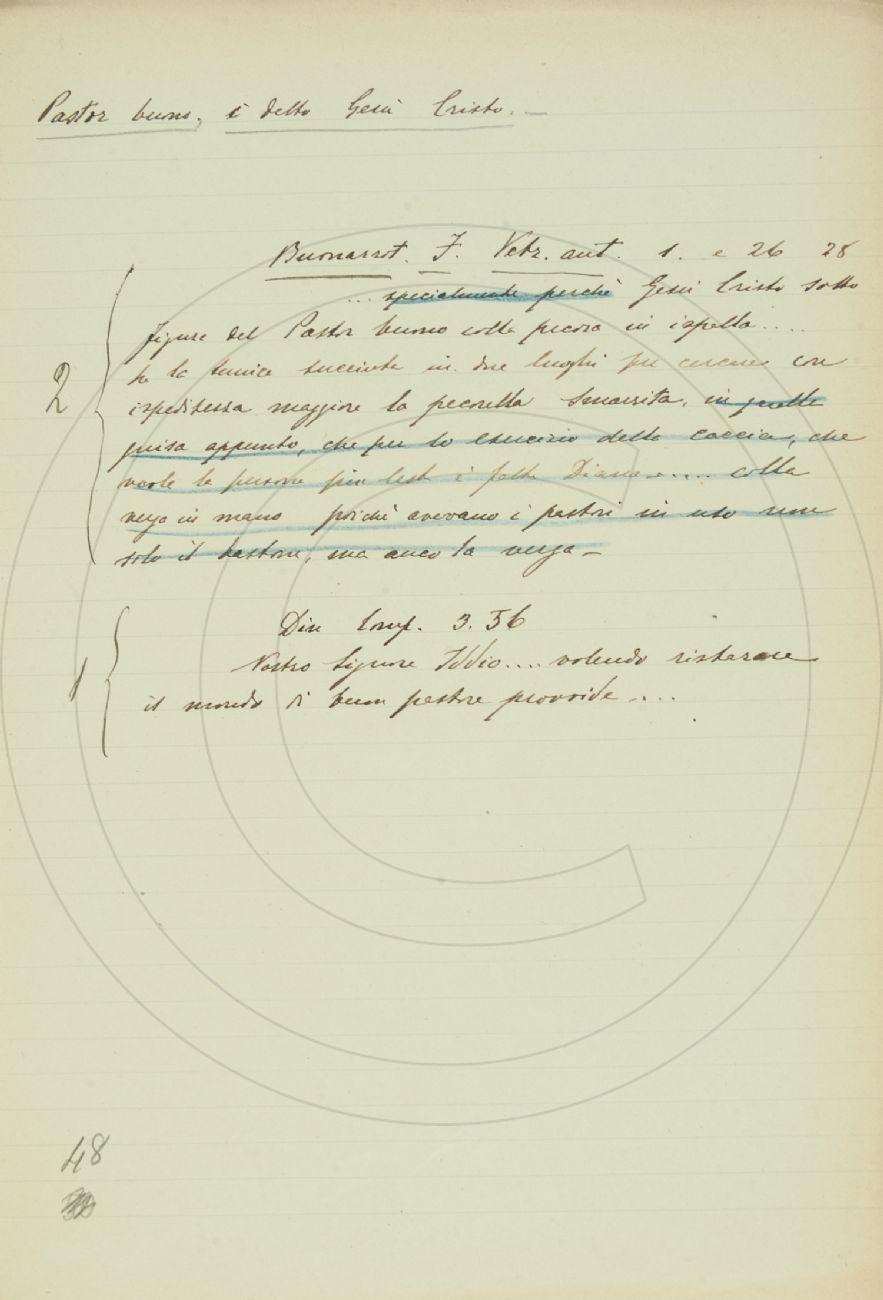 Pastor buono, è detto Gesù Cristo. —
Buonarrot. F. Vetr. ant. 1. e 26 28
... specialmente perchè Gesù Cristo sotto
figura del Pastor buono colla pecora in ispalla....
ha la tunica succinta in due luoghi per cercare con
ispeditezza maggiore la pecorella smarrita, in quella
guisa appunto, che per lo esercizio della caccia, che
vuole la persona più lesta è fatta Diana..... colla
verga in mano poichè avevano i pastori in uso non
solo il bastone, ma anco la verga —
2
Din Comp. 3. 56
Nostro Signore Iddio.... volendo ristorare
il mondo di buon pastore provvide ....
1
48